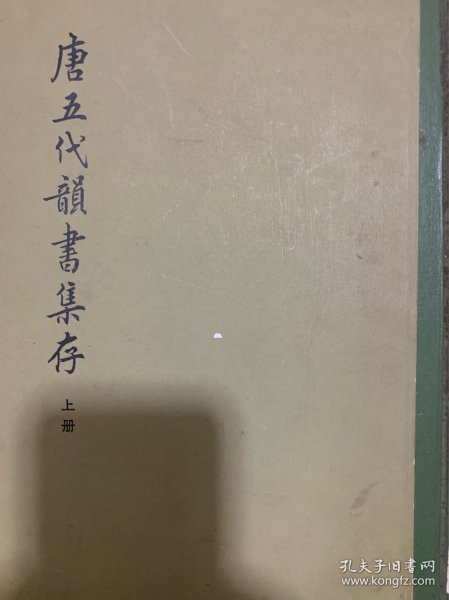 唐五代韻書集存
上册
孔夫子旧书网
www.kongfz.com